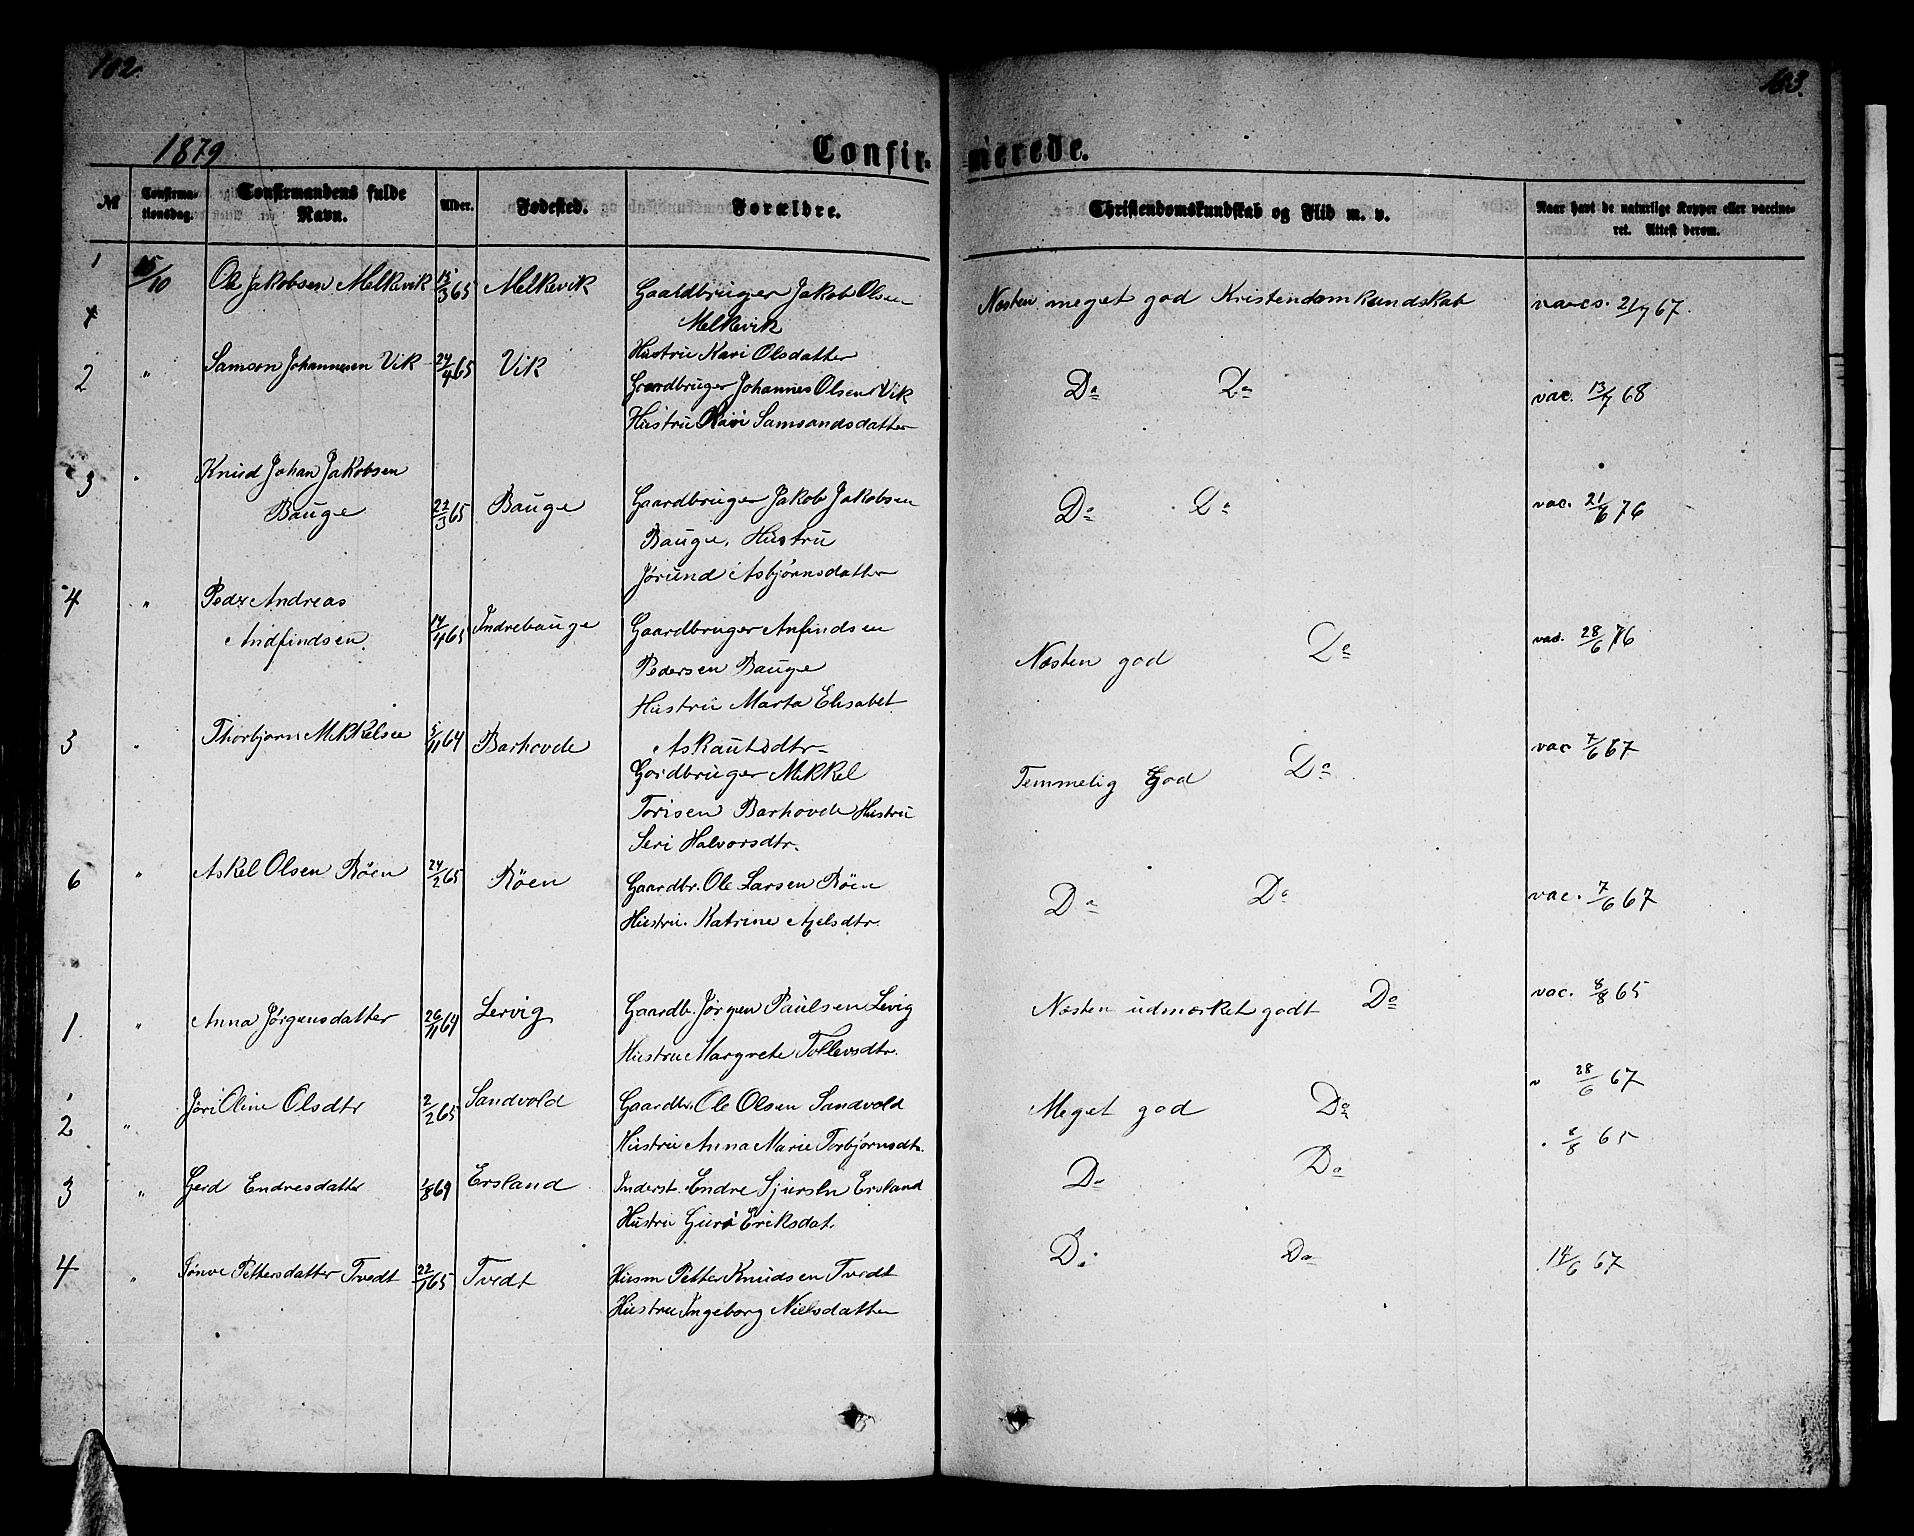 102.
103.
1879
Confir-
merede.
№
Confirma-
tionsdag.
Confirmandens fulde
Navn.
Alder.
Fødested.
Forældre.
Christendomskundskab og Flid m. v.
Naar havt de naturlige Kopper eller vaccine-
ret. Attest derom.
1 15/10 Ole Jakobsen Melkevik 15/3 65 Melkevik Gaardbruger Jakob Olsen
Melkevik
Hustru Kari Olsdatter
Næsten meget god Kristendomkundskab
vacs. 21/7 67.
2 " Samson Johannesen Vik 24/4 65 Vik
Gaardbruger Johannes Olsen Vik
Hustru Samsandsdatter
Do Do vac. 13/7 68
3 " Knud Johan Jakobsen
Bauge 22/3 65 Bauge Gaardbruger Jakob Jakobsen
Bauge, Hustru
Jørund Asbjørnsdatter
Do Do vac. 21/6 76
4 " Peder Andreas
Andfindsen 14/4 65 Indrebauge Gaardbruger Anfindsen
Pedersen Bauge
Hustru Marta Elisabet
Askautsdtr
Næsten god Do vac. 28/6 76
" Thorbjørn Mikkelsen 5/11 64 Barhovde
Gordbruger Mikkel
Torisen Barhovde Hustru
Seri Halvorsdtr.
Temmelig god Do vac 7/6 67
6 " Askel Olsen Røen 24/2 65 Røen Gaardbr. Ole Larsen Røen
Hustru. Katrine Axelsdtr.
Do Do vac. 7/6 67
1 " Anna Jørgensdatter 26/11 64 Lervig Gaardb. Jørgen Paulsen Levig
Hustru Margrete Tollevsdtr.
Næsten udmærket godt Do vac. 8/8 65
2 " Jøri Oline Olsdtr 2/2 65 Sandvold Gaardbr. Ole Olsen Sandvold
Hustru Anna Marie Torbjørnsdtr.
Meget god Do v 28/6 67
3 " Gerd Endresdatter 1/8 69 Ersland Inderst. Endre Sjursen Ersland
Hustru Guro Eriksdat.
Do Do 65
4 " Sønve Pettersdatter Tvedt 22/1 65 Tvedt Husm Petter Knudsen Tvedt
Hustru Ingeborg Nielsdatter
Do Do 14/6 67